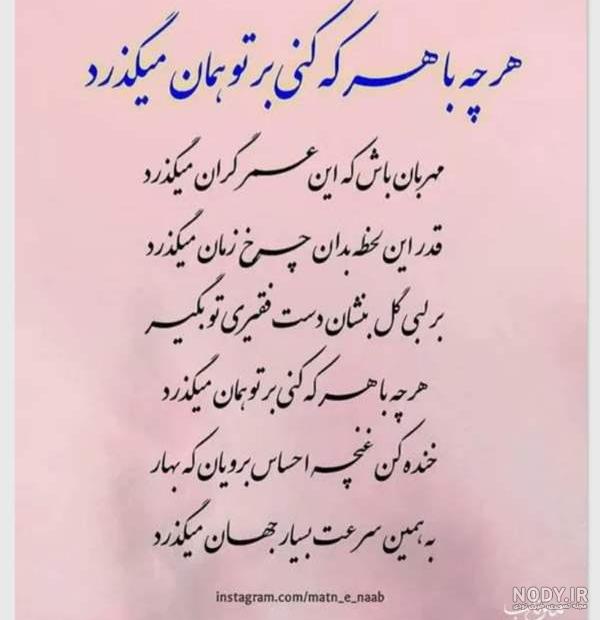 هر چه با هر که کنی بر تو همان میگذرد
مهربان باش که این عمر گران میگذرد
قدر این لحظه بدان چرخ زمان میگذرد
بر لبی گل بنشان دست فقیری تو بگیر
هر چه با هر که کنی بر تو همان میگذرد
خنده کن غنچه احساس برویان که بهار
به همین سرعت بسیار جهان میگذرد
instagram.com/matn_e_naab
NODY.IR